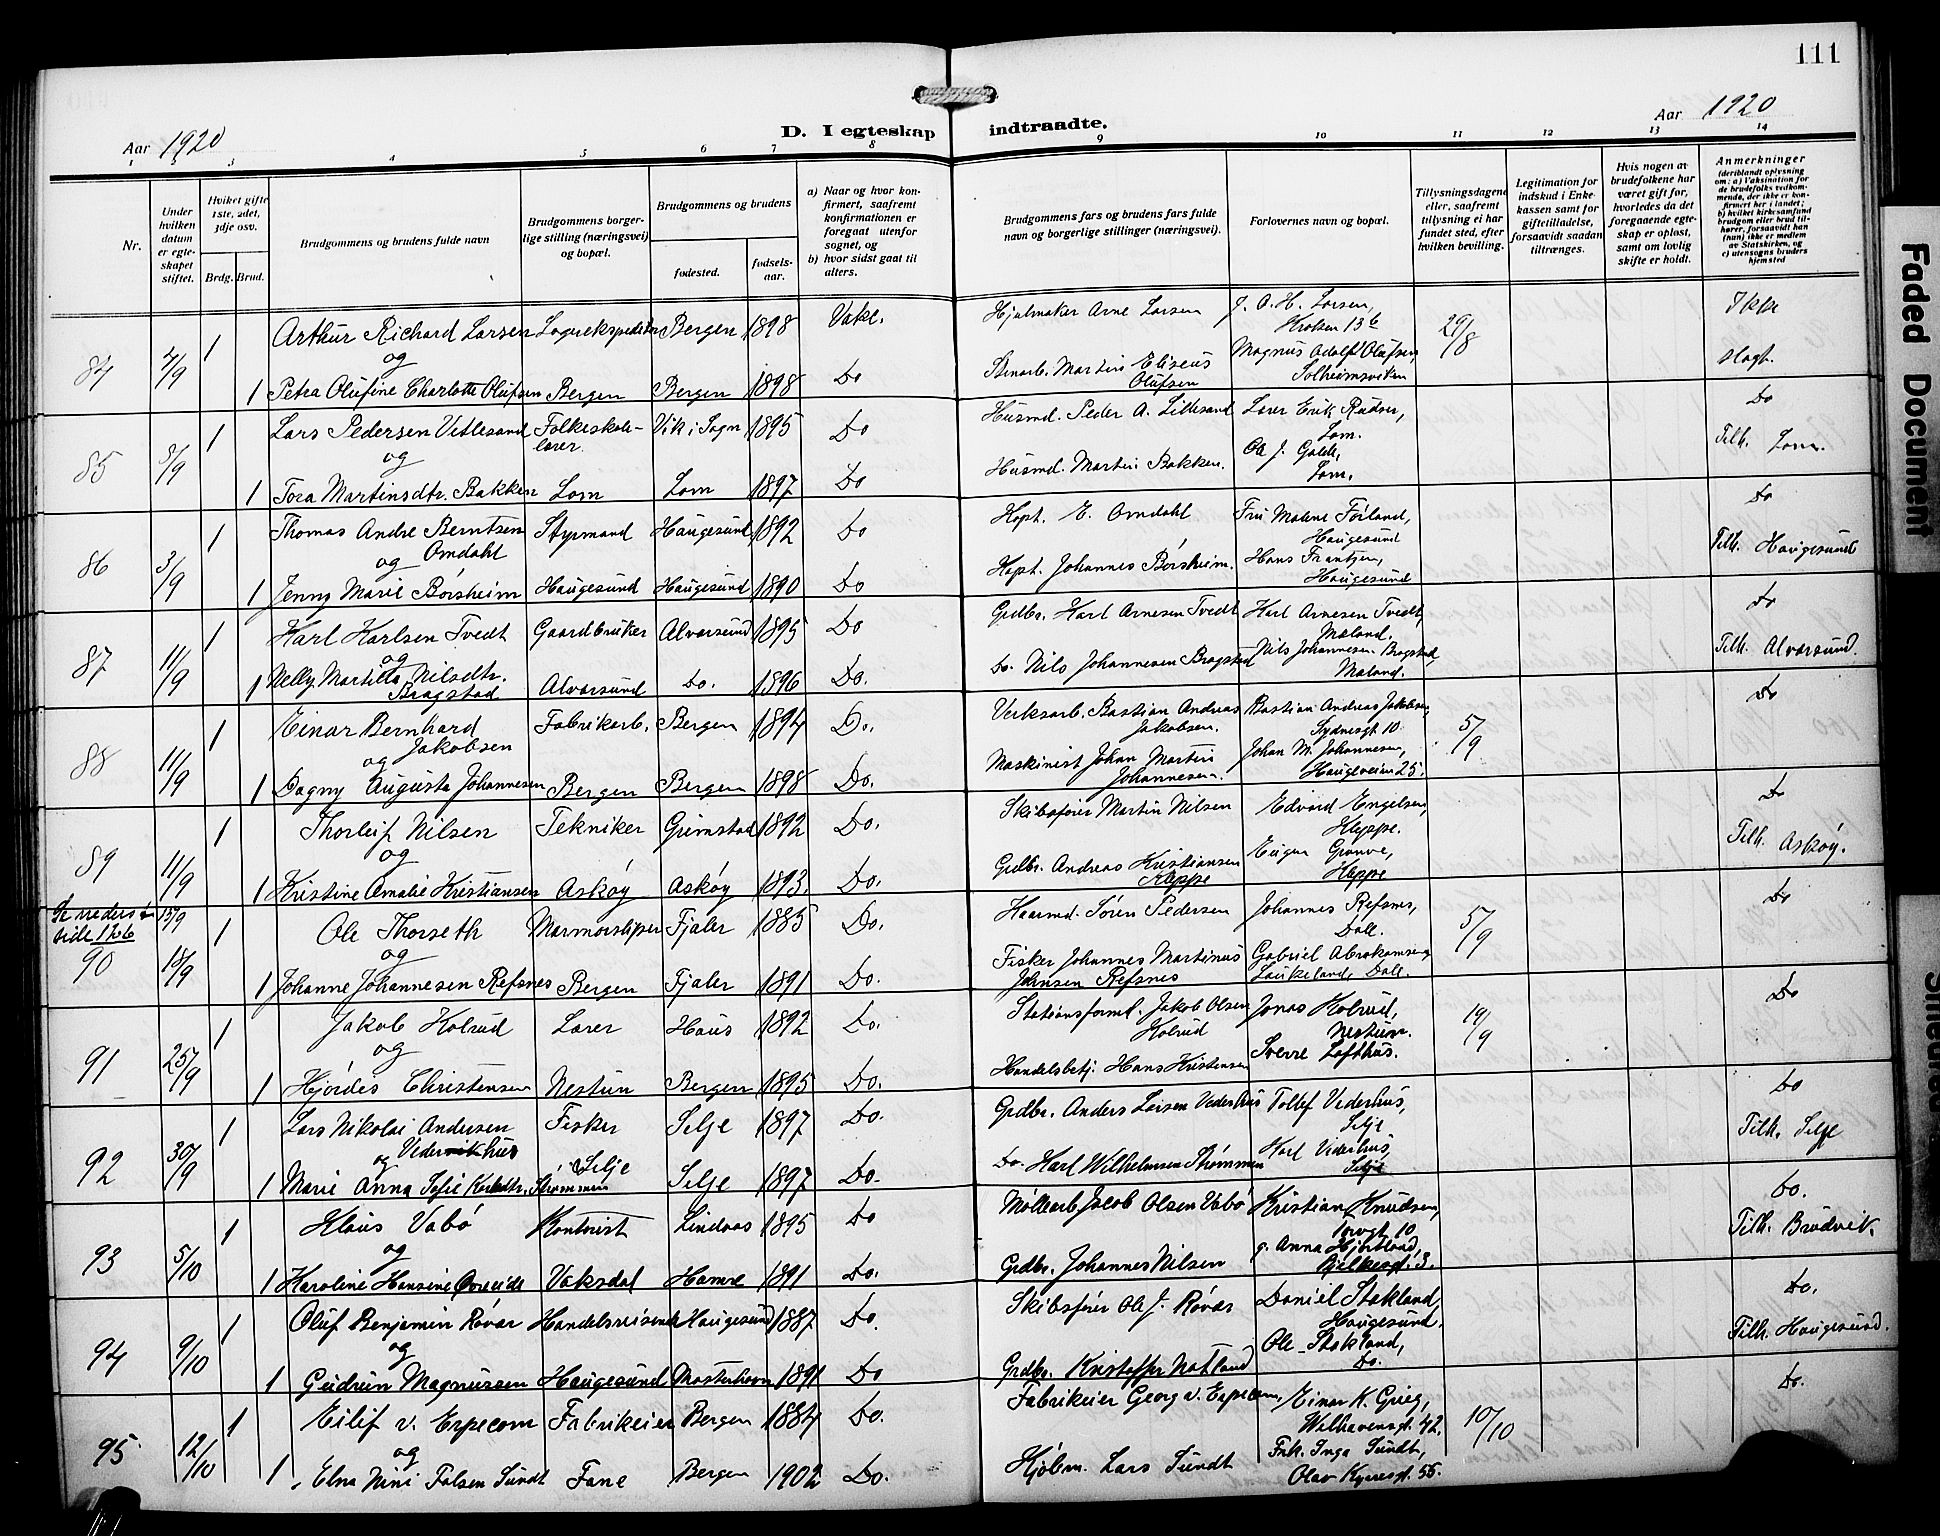 111
Aar 1920
D. I egteskap indtraadte.
Aar 1920
1 3 4 5 6 7 8 9 10 11 12 13 14
Nr.
Under hvilken datum er egteskapet stiftet.
Hvilket gifte 1ste, 2det, 3dje osv.
Brdg. Brud.
Brudgommens og brudens fulde navn
Brudgommens borgerlige stilling (næringsvei) og bopæl.
Brudgommens og brudens
fødested.
fødselsaar.
a) Naar og hvor konfirmert, saafremt konfirmationen er foregaat utenfor sognet, og
b) hvor sidst gaat til alters.
Brudgommens fars og brudens fars fulde navn og borgerlige stillinger (næringsvei).
Forlovernes navn og bopæl.
Tillysningsdagene eller, saafremt tillysning ei har fundet sted, efter hvilken bevilling.
Legitimation for indskud i Enkekassen samt for giftetilladelse, forsaavidt saadan tiltrænges.
Hvis nogen av brudefolkene har været gift før, hvorledes da det foregaaende egteskap er opløst, samt om lovlig skifte er holdt.
Anmerkninger
(deriblandt oplysning om: a) Vaksination for de brudefolks vedkommende, der ikke er konfirmert her i landet; b) hvilket kirkesamfund brudgom eller brud tilhører, forsaavidt han (hun) ikke er medlem av Statskirken, og c) utensogns bruders hjemsted
84 4/9 1 Arthur Richard Larsen Bergen 1898 Vake. Hjulmaker Arne Larsen J. A. H. Larsen, 29/8 Ikke
og 13 b
1 Petra Olufine Charlotte Olufsen Bergen Bergen 1898 Do Martin Eliseus Olufsen Magnus Adolf Olufsen, Solheimsviken slegt.
85 8/9 1 Lars Pedersen Vetlesand Folkeskolelærer Vik i Sogn 1895 Do Husmd. Peder A. Lillesand Lærer Erik Rudser, Lom. Do
og
1 Tora Martinsdtr. Bakken Lom Lom 1897 Do Husmd. Martin Bakken. Ole J. Galde, Lom. Tilh. Lom.
86 3/9 1 Thomas Andre Berntsen Omdahl Styrmand Haugesund 1892 Do Kapt. E. Omdahl Fru Malene Førland, Haugesund Do
og
1 Jenny Marie Børsheim Haugesund Haugesund 1890 Do Kapt. Johannes Børsheim. Hans Frantzen, Haugesund Tilh. Haugesund
87 11/9 1 Karl Karlsen Tvedt Gaardbruker Alversund 1895 Do Grdbr. Karl Arnesen Tvedt Karl Arnesen Tvedt, Mæland. Do
og
1 Nelly Martilla Nilsdtr. Bragstad Alversund Do. 1896 Do. Do. Nils Johannesen Bragstad Nils Johannesen Bragstad, Mæland. Tilh. Alversund.
88 11/9 1 Einar Bernhard Jakobsen Fabrikarb. Bergen 1894 Do. Verksarb. Bastian Andreas Jakobsen. Bastian Andreas Jakobsen, Sydnesgt 10. 5/9 Do
og
1 Dagny Augusta Johannesen Bergen Bergen 1898 Do. Maskinist Johan Martin Johannesen. Johan M. Johannesen, Haugeveien 25.
89 11/9 1 Thorleif Nilsen Tekniker Grimstad 1892 Do. Skibsfører Martin Nilsen Edvard Engelsen, Kleppe. Do
og
1 Kristine Amalie Kristiansen Askøy Askøy 1893. Do. Grdbr. Andreas Kristiansen Kleppe Eugen Kleppe Tilh. Askøy.
Se nederst side 126
90 15/9 18/9 1 Ole Thorseth Marmorsliper Fjaler 1885 Do. Husmd. Søren Pedersen Johannes Refsnes, Dale. 5/9 Do
og
1 Johanne Johannesen Refsnes Bergen Fjaler 1891 Do. Fisker Johannes Martinus Johnsen Refsnes Gabriel Abrahamsen Laukeland, Dale.
91 25/9 1 Jakob Kolrud Lærer Haus 1892 Do. Stationsformd. Jakob Olsen Kolrud Jonas Kolrud, Nestun. 19/9 Do
og
1 Hjørdis Christensen Nestun Bergen 1895 Do. Handelsbetj. Hans Kristensen Sverre Lofthus.
92 30/9 1 Lars Nikolai Andersen Vederhus Fisker Selje 1897 Do. Grdbr. Anders Larsen Vederhus Tollef Vederhus, Selje Do
og
1 Marie Anna Sofie Karlsdtr. Strømmen Selje Selje 1897 Do. Do. Karl Wilhelmsen Strømmen Karl Vederhus, Selje Tilh. Selje
93 5/10 1 Klaus Vabø Kontorist Lindaas 1895 Do Møllearb. Jacob Olsen Vabø Kristian Knudsen, Torvgt 10 Do.
og
1 Karoline Hansine Vaksdal Hamre 1891 Do. Grdbr. Johannes Nilsen Anna Hjortland, 3. Tilh. Brudvik.
94 9/10 1 Oluf Benjamin Røvær Handelsreisende Haugesund 1887 Do. Skibsfører Ole J. Røvær Daniel Stakland, Haugesund. Do.
og
1 Gudrun Magnussen Haugesund Mosterhavn 1891 Do Grdbr. Kristoffer Natland Ole Stakland, Do. Tilh. Haugesund.
95 12/10 1 Eilif v. Erpecom Fabrikeier Bergen 1884 Do. Fabrikeier Georg v. Erpecom, Einar K. Grieg, Welhavensgt. 42. 10/10 Do.
og
1 Elna Nini Falsen Sundt Fane Bergen 1902 Do. Hjøbm. Lars Sundt Frk. Inga Sundt, Olav Kyrresgt. 55.
Faded Document